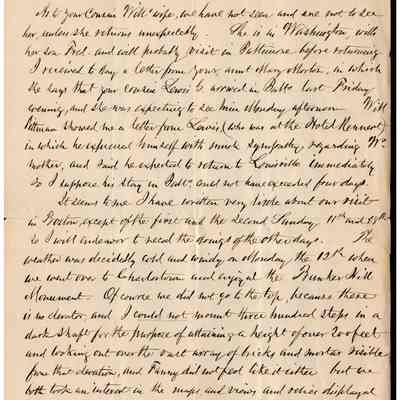 As to your Cousin Will's wife, we have not seen and are not to see
her, unless she returns unexpectedly. She is in Washington with
her son Fred. and will probably visit in Baltimore before returning
I received to day a letter from your aunt Mary Morton, in which
she says that your cousin Lewis arrived in Balto last Friday
evening, and she was expecting to see him Monday afternoon. Will
Pittman showed me a letter from Lewis, (who was at the Hotel Rennert)
in which he expressed himself with much sympathy regarding Wm's
mother, and said he expected to return to Louisville immediately
So I suppose his stay in Balto. will not have exceeded four days.
It seems to me I have written very little about our visit
in Boston, except of the first and the second Sunday 11th and 18th
So I will endeavor to recall the doings of the other days. The
weather was decidedly cold and windy, on Monday the 12th when
we went over to Charlestown and at the Bunker Hill
Monument. Of course we did not go to the top, because there
is no elevator and I could not mount three hundred steps in a
dark shaft for the purpose of attaining a height of over 200 feet
and looking out over the vast array of bricks and mortar visible
from that elevation, and Fanny did not feel like it either but we
both took an interest in the maps and views and relics displayed